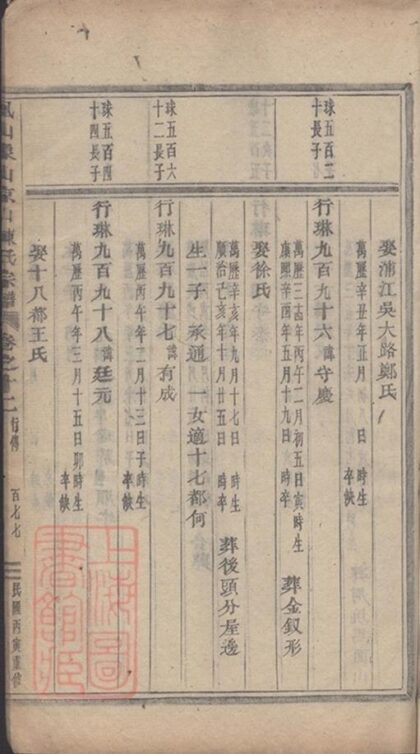 娶浦江吳大路鄭氏
萬歷辛丑年正月 日 時生
卒缺
珠五百二
十長子
行琳九百九十六諱守慶
萬歷三十四年丙午二月初五日寅時生
康熙辛酉年五月十九日 時卒
葬金釵形
娶徐氏
萬歷辛亥年九月十七日 時生
順治己亥年十月廿五日 時卒
葬後頭分屋邊
生一子承通一女適十七都何
珠五百六
十二長子
行琳九百九十七諱有成
萬歷丙午年三月十三日子時生
卒缺
珠五百四
十四長子
行琳九百九十八諱廷元
萬歷丙午年三月十五日卯時生
卒缺
娶十八都王氏
山 山 山陳氏宗譜 卷之十二 行傳 百七七 民國丙寅重修
上海圖
書館藏